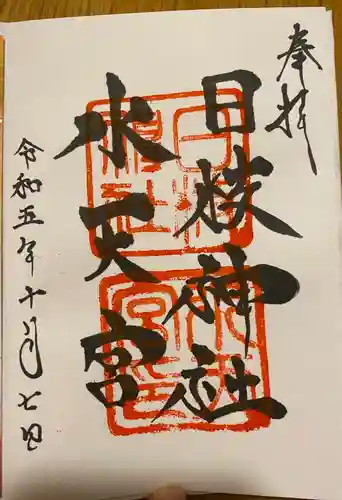 奉拝
日枝神社
水天宮
令和五年十月七日